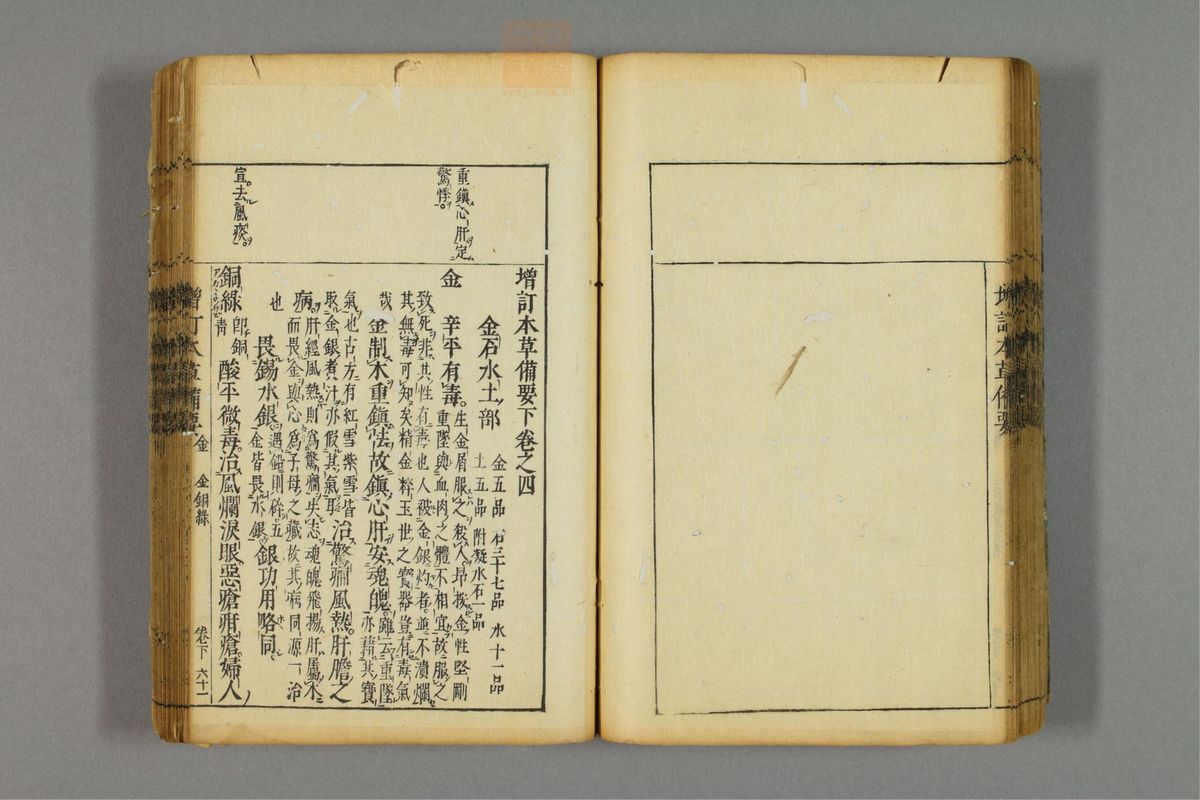 増訂本草備要
増訂本草備要下卷之四
金石水土部
金五品 石三十七品 水十一品
土五品 附凝水石一品
重鎮心肝定
驚悸
金
辛平有毒
生金屑服之殺人昂按金性堅剛
重墜與血肉之體不相宜故服之
致死非其性有毒也人被金銀灼者並不潰爛
其無毒可知矣精金粹玉世之寶器豈有毒氣
哉
金制木重鎮怯故鎮心肝安魂魄
雖云重墜
亦藉其寶
氣也古方有紅雪紫雪皆
取金銀煮汁亦假其氣耳
治驚癇風熱肝膽之
病
肝經風熱則為驚癇失志魂魄飛揚肝屬木
而畏金與心為子母之藏故其病同源一治
也
畏錫水銀
遇鉛則碎五
金皆畏水銀
銀功用略同
宣去風痰
銅綠
即銅
青
酸平微毒治風爛淚眼惡瘡疳瘡婦人
増訂本草備要
金
金 銅綠
卷下
六十一